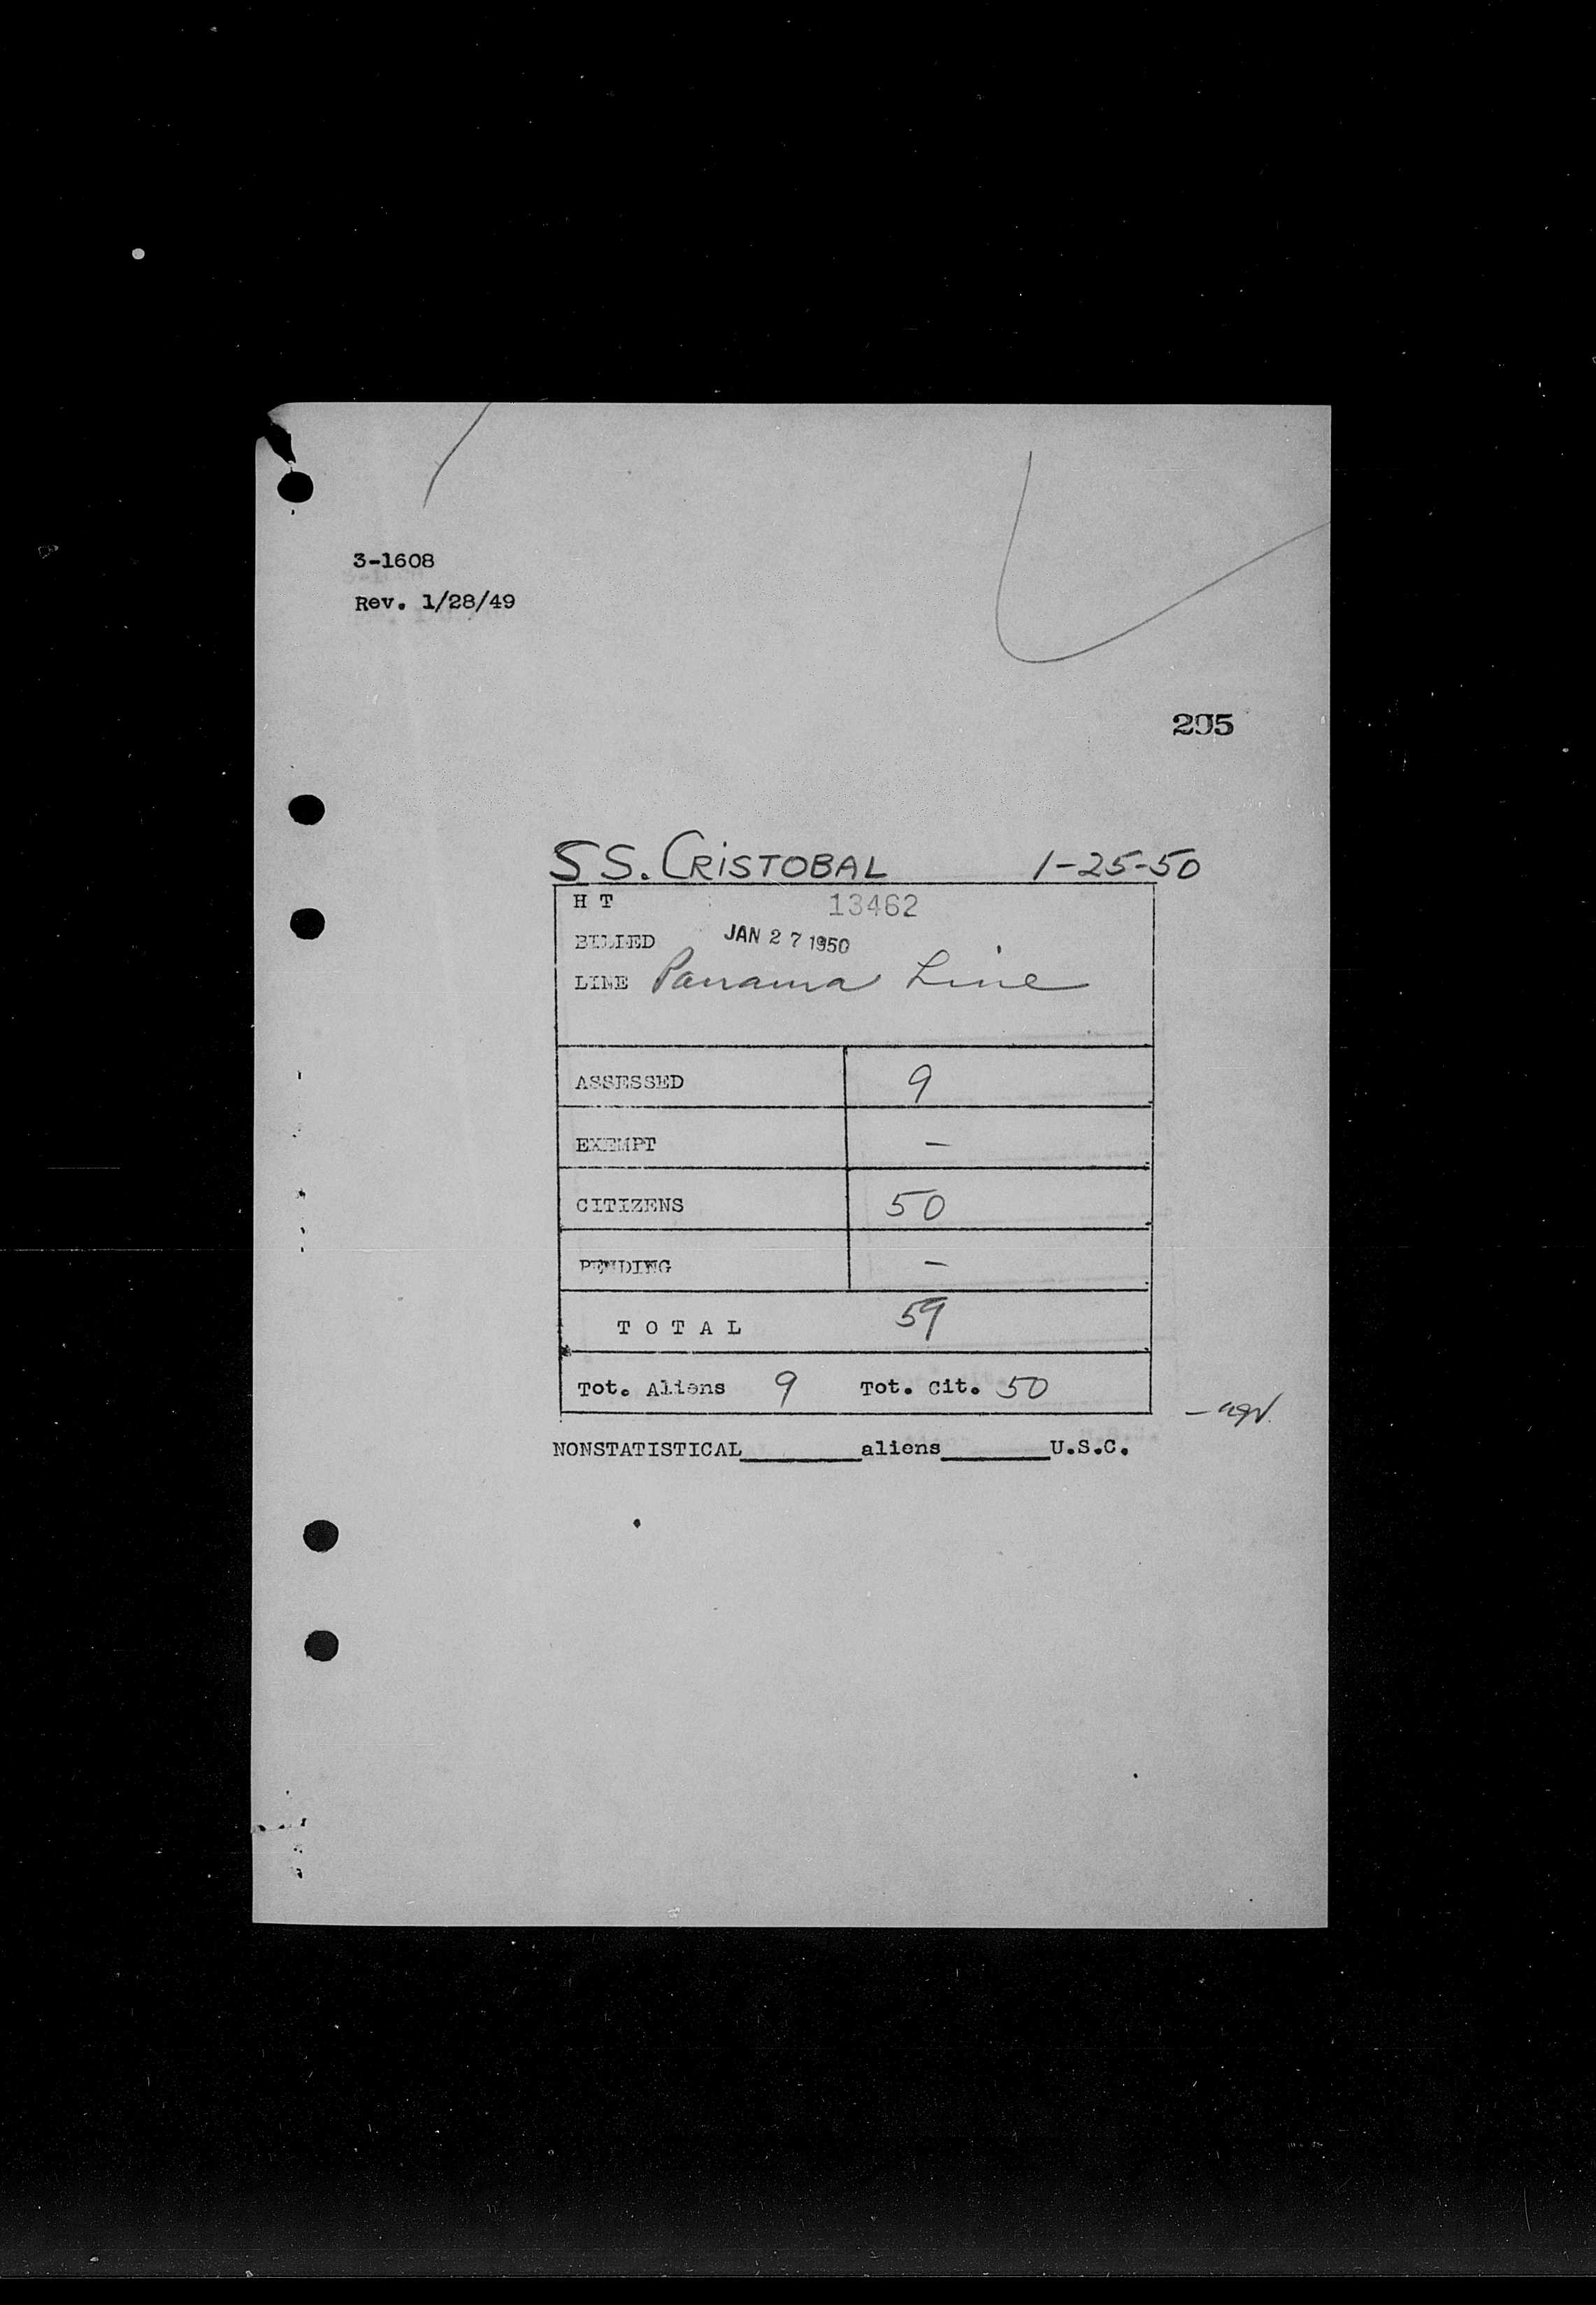 3-1608
Rev. 1/28/49
295
SS. CRISTOBAL 1-25-50
H T 13462
BILLED JAN 27 1950
LINE Panama Line
ASSESSED 9
EXEMPT —
CITIZENS 50
PENDING —
T O T A L 59
Tot. Aliens 9 Tot. Cit. 50
NONSTATISTICAL________aliens________U.S.C.